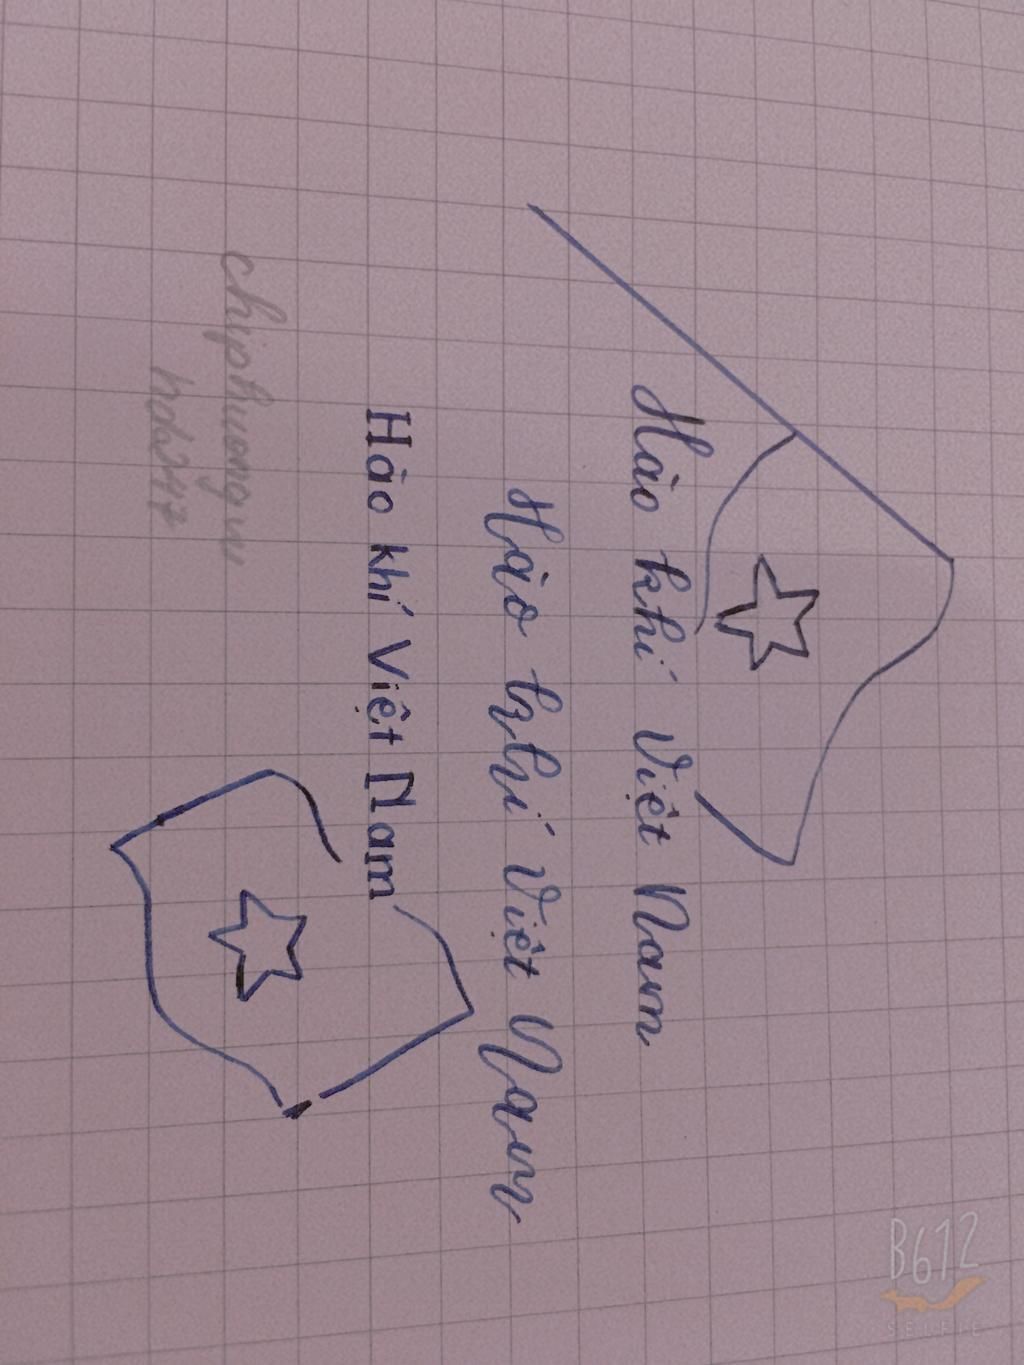 Hào khí Việt Nam
Hào khí Việt Nam
Hào khí Việt Nam
B612
SELFIE